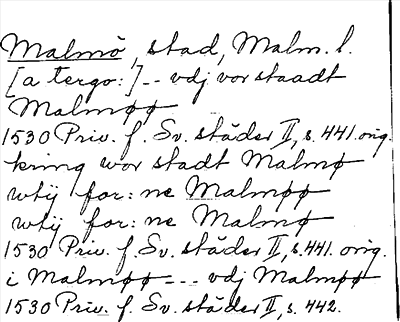 Malmö, stad, Malm. l.
[a tergo:] -- vdj vor staadt
Malmøø
1530 Priv. f. Sv. städer II, s. 441. orig.
kring wor stadt Malmø
wtij for: ne Malmøø
wtij for: ne Malmø
1530 Priv. f. Sv. städer II, s. 441. orig.
i Malmøø --- vdj Malmøø
1530 Priv. f. Sv. städer II, s. 442.